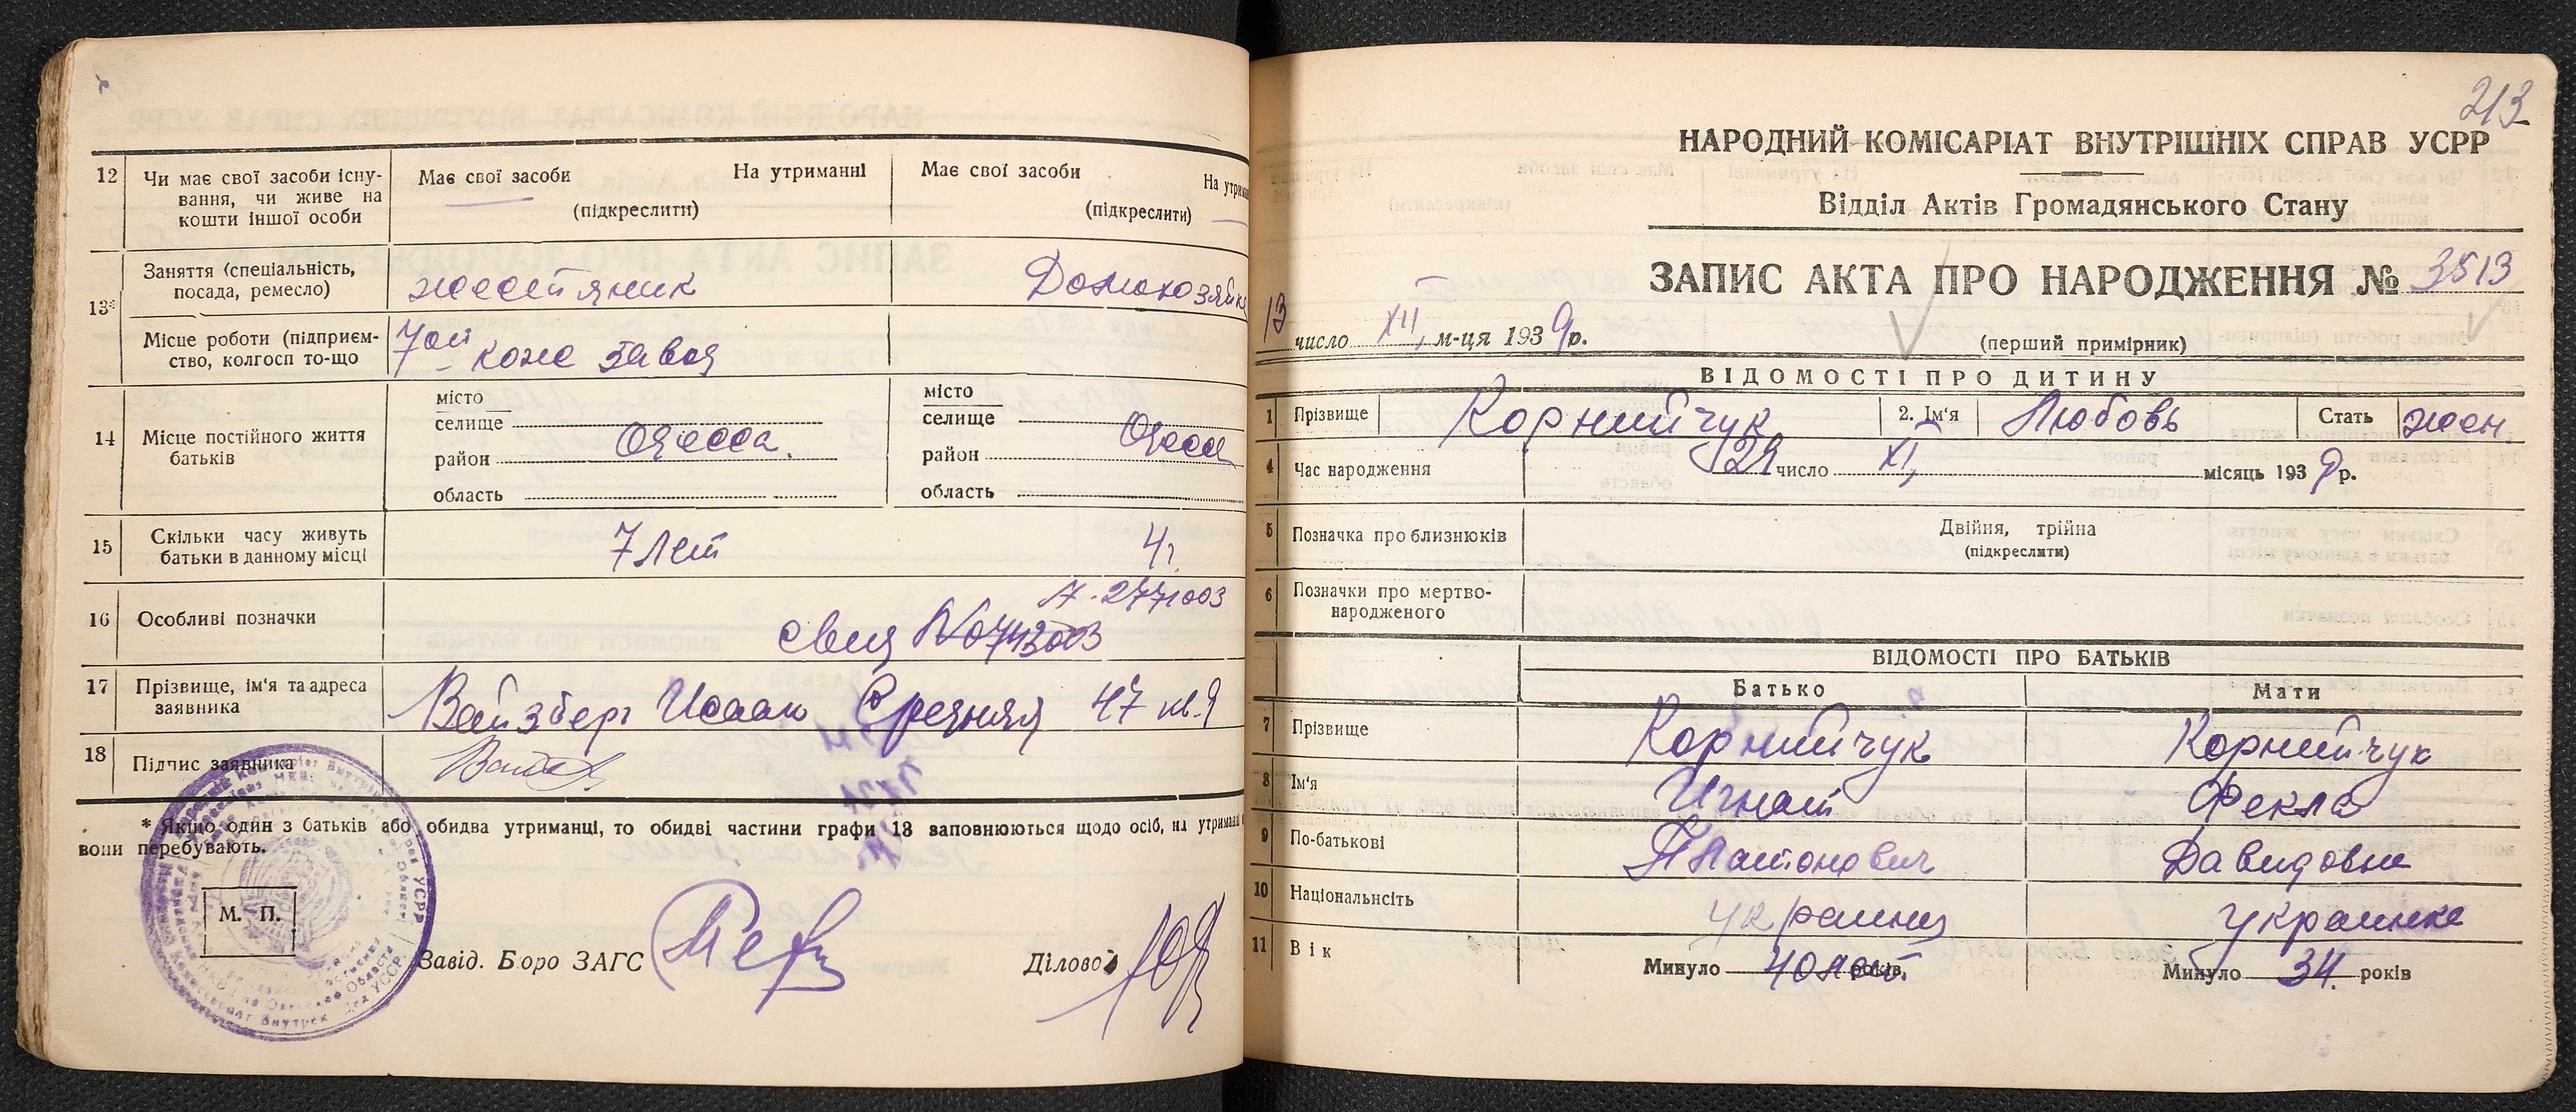 12 Чи має свої засоби існу-
вання, чи живе на
кошти іншої особи
Має свої засоби На утриманні
(підкреслити)
Має свої засоби
На утриман
(підкреслити)
13* Заняття (спеціальність,
посада, ремесло)
жестяник
Домохозяйка
Місце роботи (підприєм-
ство, колгосп то-що
7ой кож завод
14 Місце постійного життя
батьків
місто
селище
район Одесса.
область
місто
селище
район Одесса
область
15 Скільки часу живуть
батьки в данному місці
7 лет
4 г.
16 Особливі позначки
свид №
17 Прізвище, ім'я та адреса
заявника
Вайзберг Исаак Средняя 47 кв. 9
18 Підпис заявника
* Якщо один з батьків або обидва утриманці, то обидві частини графи 13 заповнюються щодо осіб, на утриманні
вони перебувають.
М. П.
Завід. Бюро ЗАГС
Діловод
213
НАРОДНИЙ КОМІСАРІАТ ВНУТРІШНІХ СПРАВ УСРР
Відділ Актів Громадянського Стану
ЗАПИС АКТА ПРО НАРОДЖЕННЯ № 3513
13 число XII, м-ця 1939 р.
(перший примірник)
ВІДОМОСТІ ПРО ДИТИНУ
1 Прізвище Корнийчук 2. Ім'я Любовь Стать жен.
4 Час народження 29 число XI, місяць 1939 р.
5 Позначка про близнюків
Двійня, трійна
(підкреслити)
6 Позначки про мертво-
народженого
ВІДОМОСТІ ПРО БАТЬКІВ
Батько Мати
7 Прізвище Корнийчук Корнийчук
8 Ім'я Игнат Фекла
9 По-батькові Платонович Давидовна
10 Національність украинец украинка
11 Вік Минуло 40 лет років. Минуло 34. років